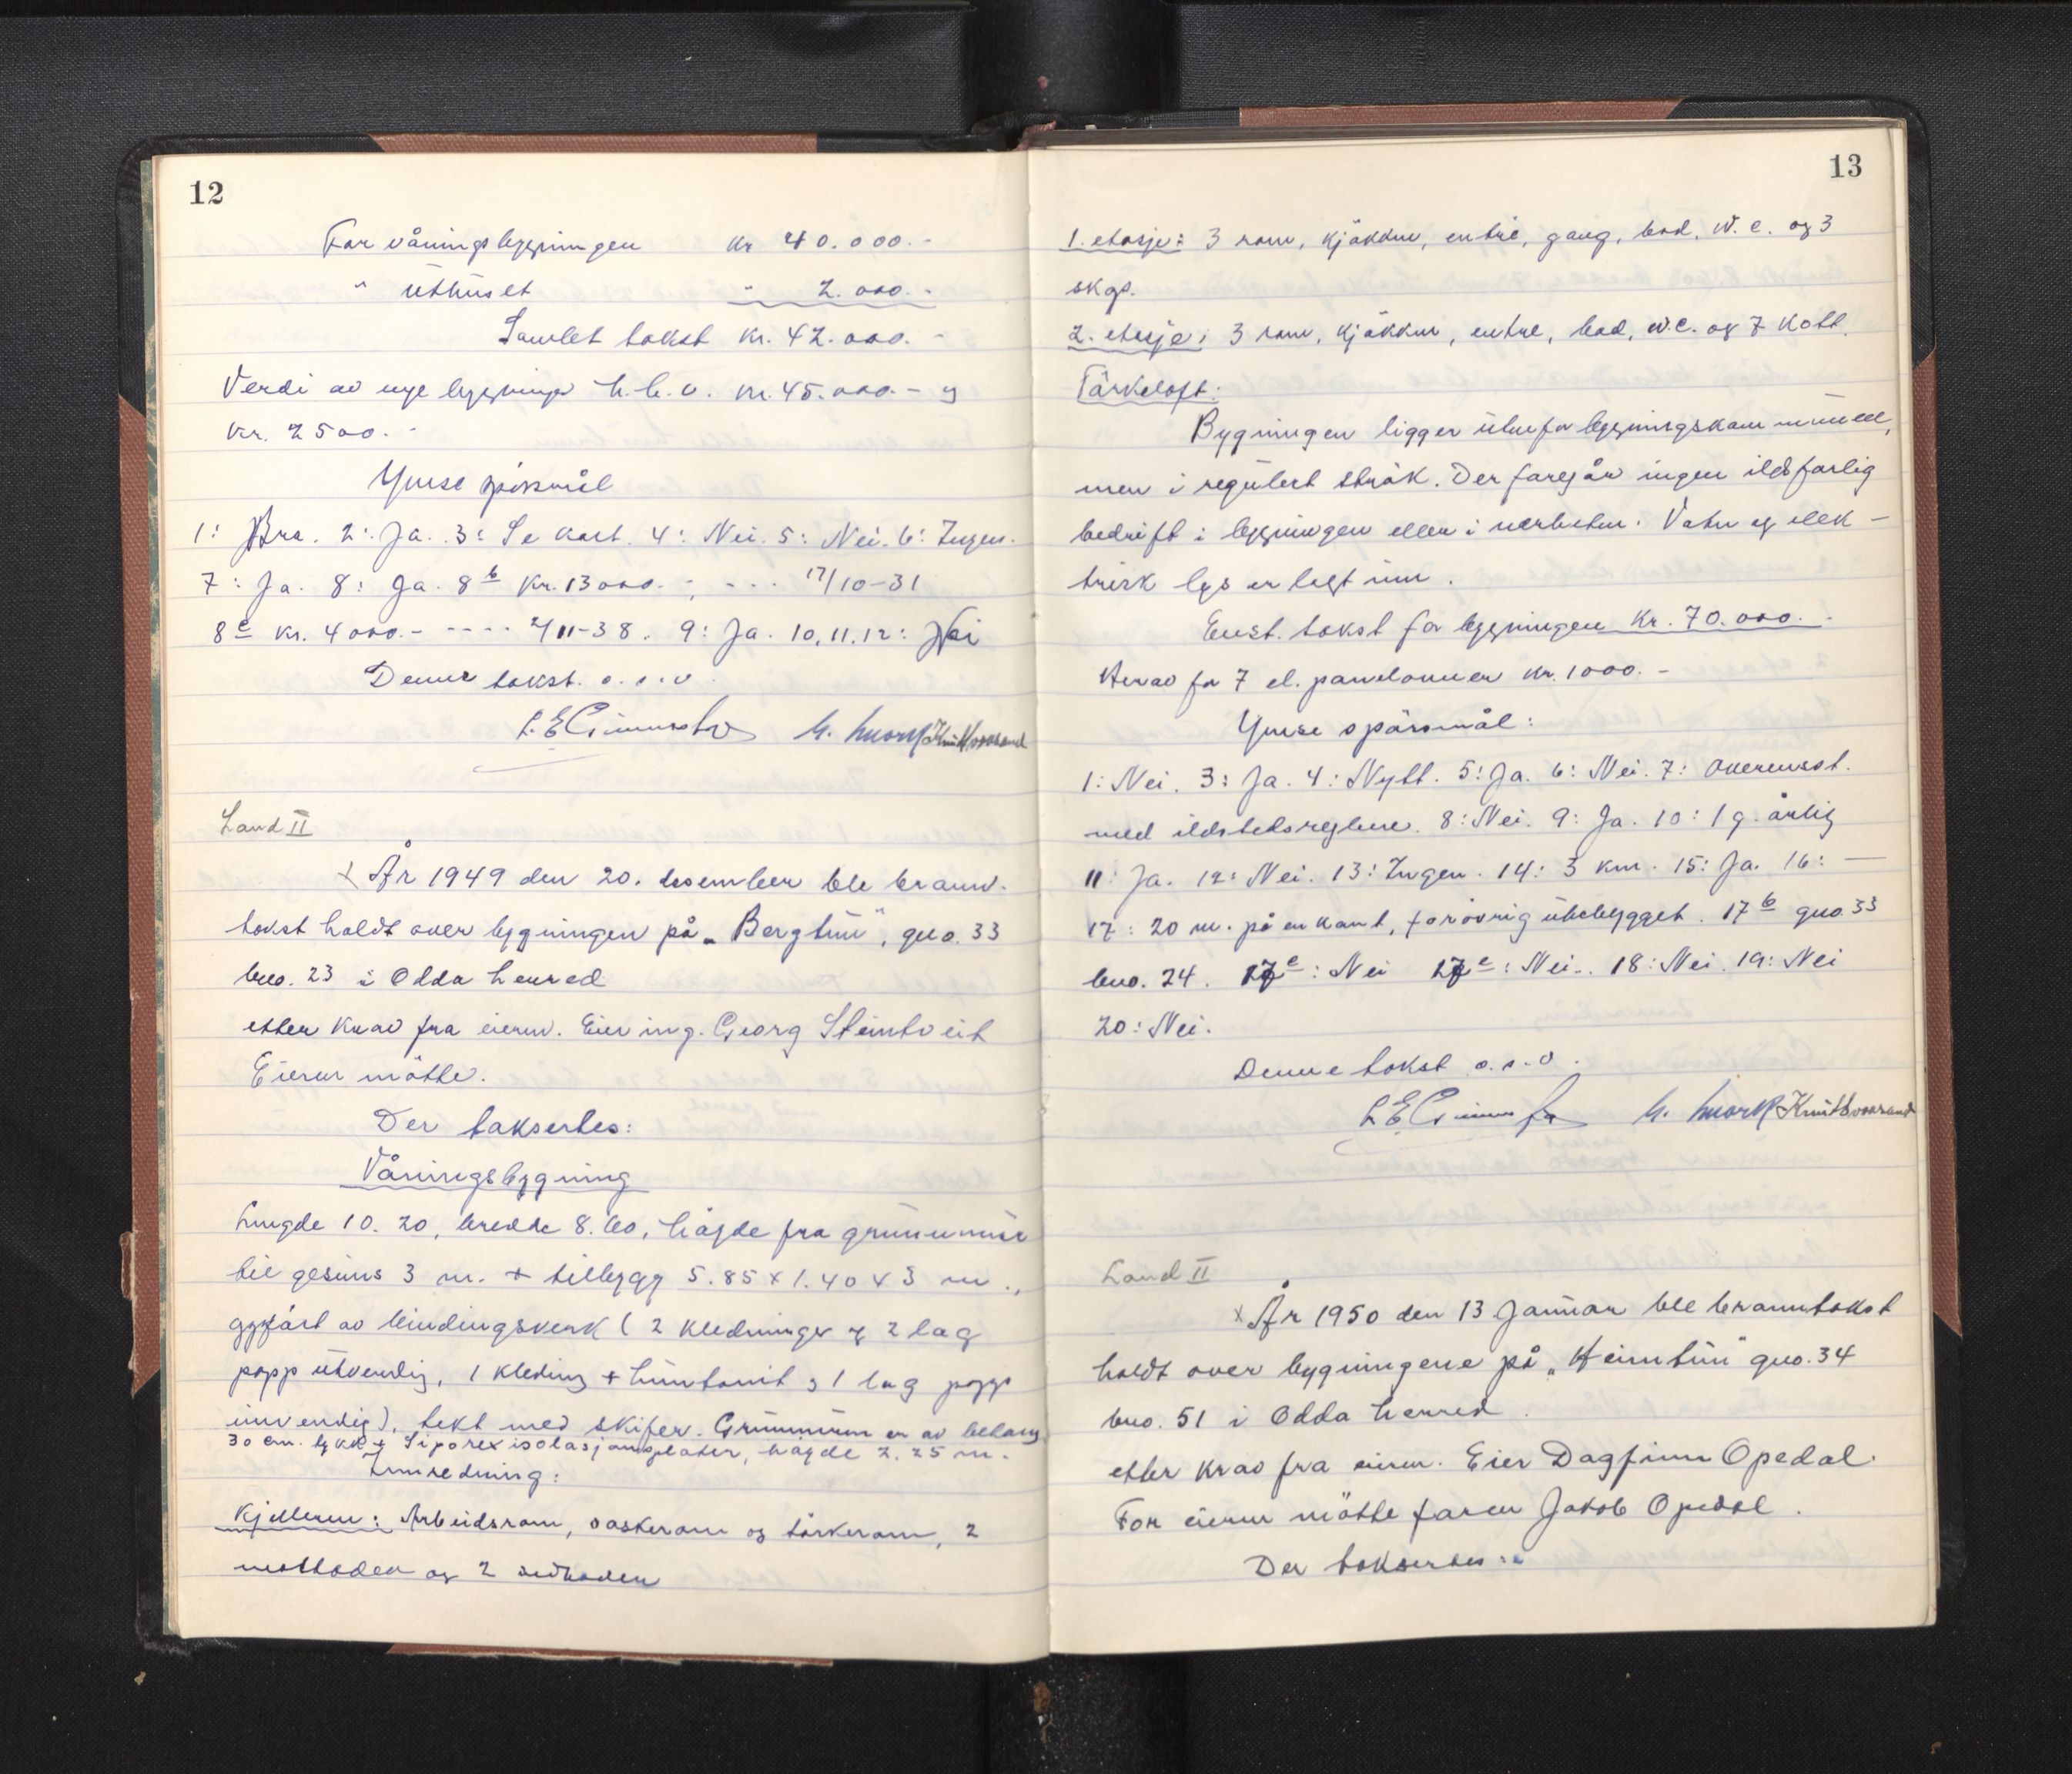 12
For våningsbygningen kr 40.000.-
" uthuset " 2.000.-
Samlet takst kr. 42.000.-
Verdi av nye bygninger h.h.v. kr. 45.000.- og
kr. 2500.-
Ymse spörsmål
1: Bra. 2: Ja. 3: Se kart. 4: Nei. 5: Nei. 6: Ingen.
7: Ja. 8: Ja. 8b kr. 13000.-, - - - 17/10-31
8c kr. 4000.- - - - - 2/11-38. 9: Ja. 10, 11, 12: Nei
Denne takst. o.s.v.
Land II
x År 1949 den 20. desember ble brann-
takst holdt over bygningen på „Bergtun", gno. 33
bno. 23 i Odda herred
etter krav fra eieren. Eier ing. Georg Steintveit
Eieren mötte.
Der taksertes:
Våningsbygning
Lengde 10.20, bredde 8.60, högde fra grunnmur
til gesims 3 m. + tilbygg 5.85 x 1.40 x 3 m.,
oppfört av bindingsverk (2 kledninger og 2 lag
papp utvendig, 1 kledning + huntonit og 1 lag papp
innvendig), tekt med skifer. Grunnmuren er av betong
30 cm. tykk + Siporex isolasjonsplater, högde 2.25 m.
Innredning:
Kjelleren: Arbeidsrom, vaskerom og törkerom, 2
matboder og 2 vedboder
13
1. etasje: 3 rom, kjökken, entré, gang, bad, W.C. og 3
skap.
2. etasje: 3 rom, kjökken, entre, bad, W.C. og 7 kott.
Törkeloft:
Bygningen ligger utenfor bygningskommunen,
men i regulert strök. Der foregår ingen ildsfarlig
bedrift i bygningen eller i nærheten. Vatn og elek-
trisk lys er lagt inn.
Enst. takst for bygningen kr. 70.000.-
Herav for 7 el. panelovner kr. 1000.-
Ymse spörsmål:
1: Nei. 3: Ja. 4: Nytt. 5: Ja. 6: Nei. 7: Overensst.
med ildstedsreglene. 8: Nei. 9: Ja. 10: 1 g. årlig
11: Ja. 12: Nei. 13: Ingen. 14: 3 km. 15: Ja. 16: —
17: 20 m. på en kant, forövrig ubebygget. 17b gno. 33
bno. 24. 17c: Nei 17e: Nei.. 18: Nei. 19: Nei
20: Nei.
Denne takst o.s.v.
Land II
x År 1950 den 13 Januar ble branntakst
holdt over bygningene på „Heimtun" gno. 34
bno. 51 i Odda herred.
etter krav fra eieren. Eier Dagfinn Opedal.
For eieren mötte faren Jakob Opedal.
Der taksertes: